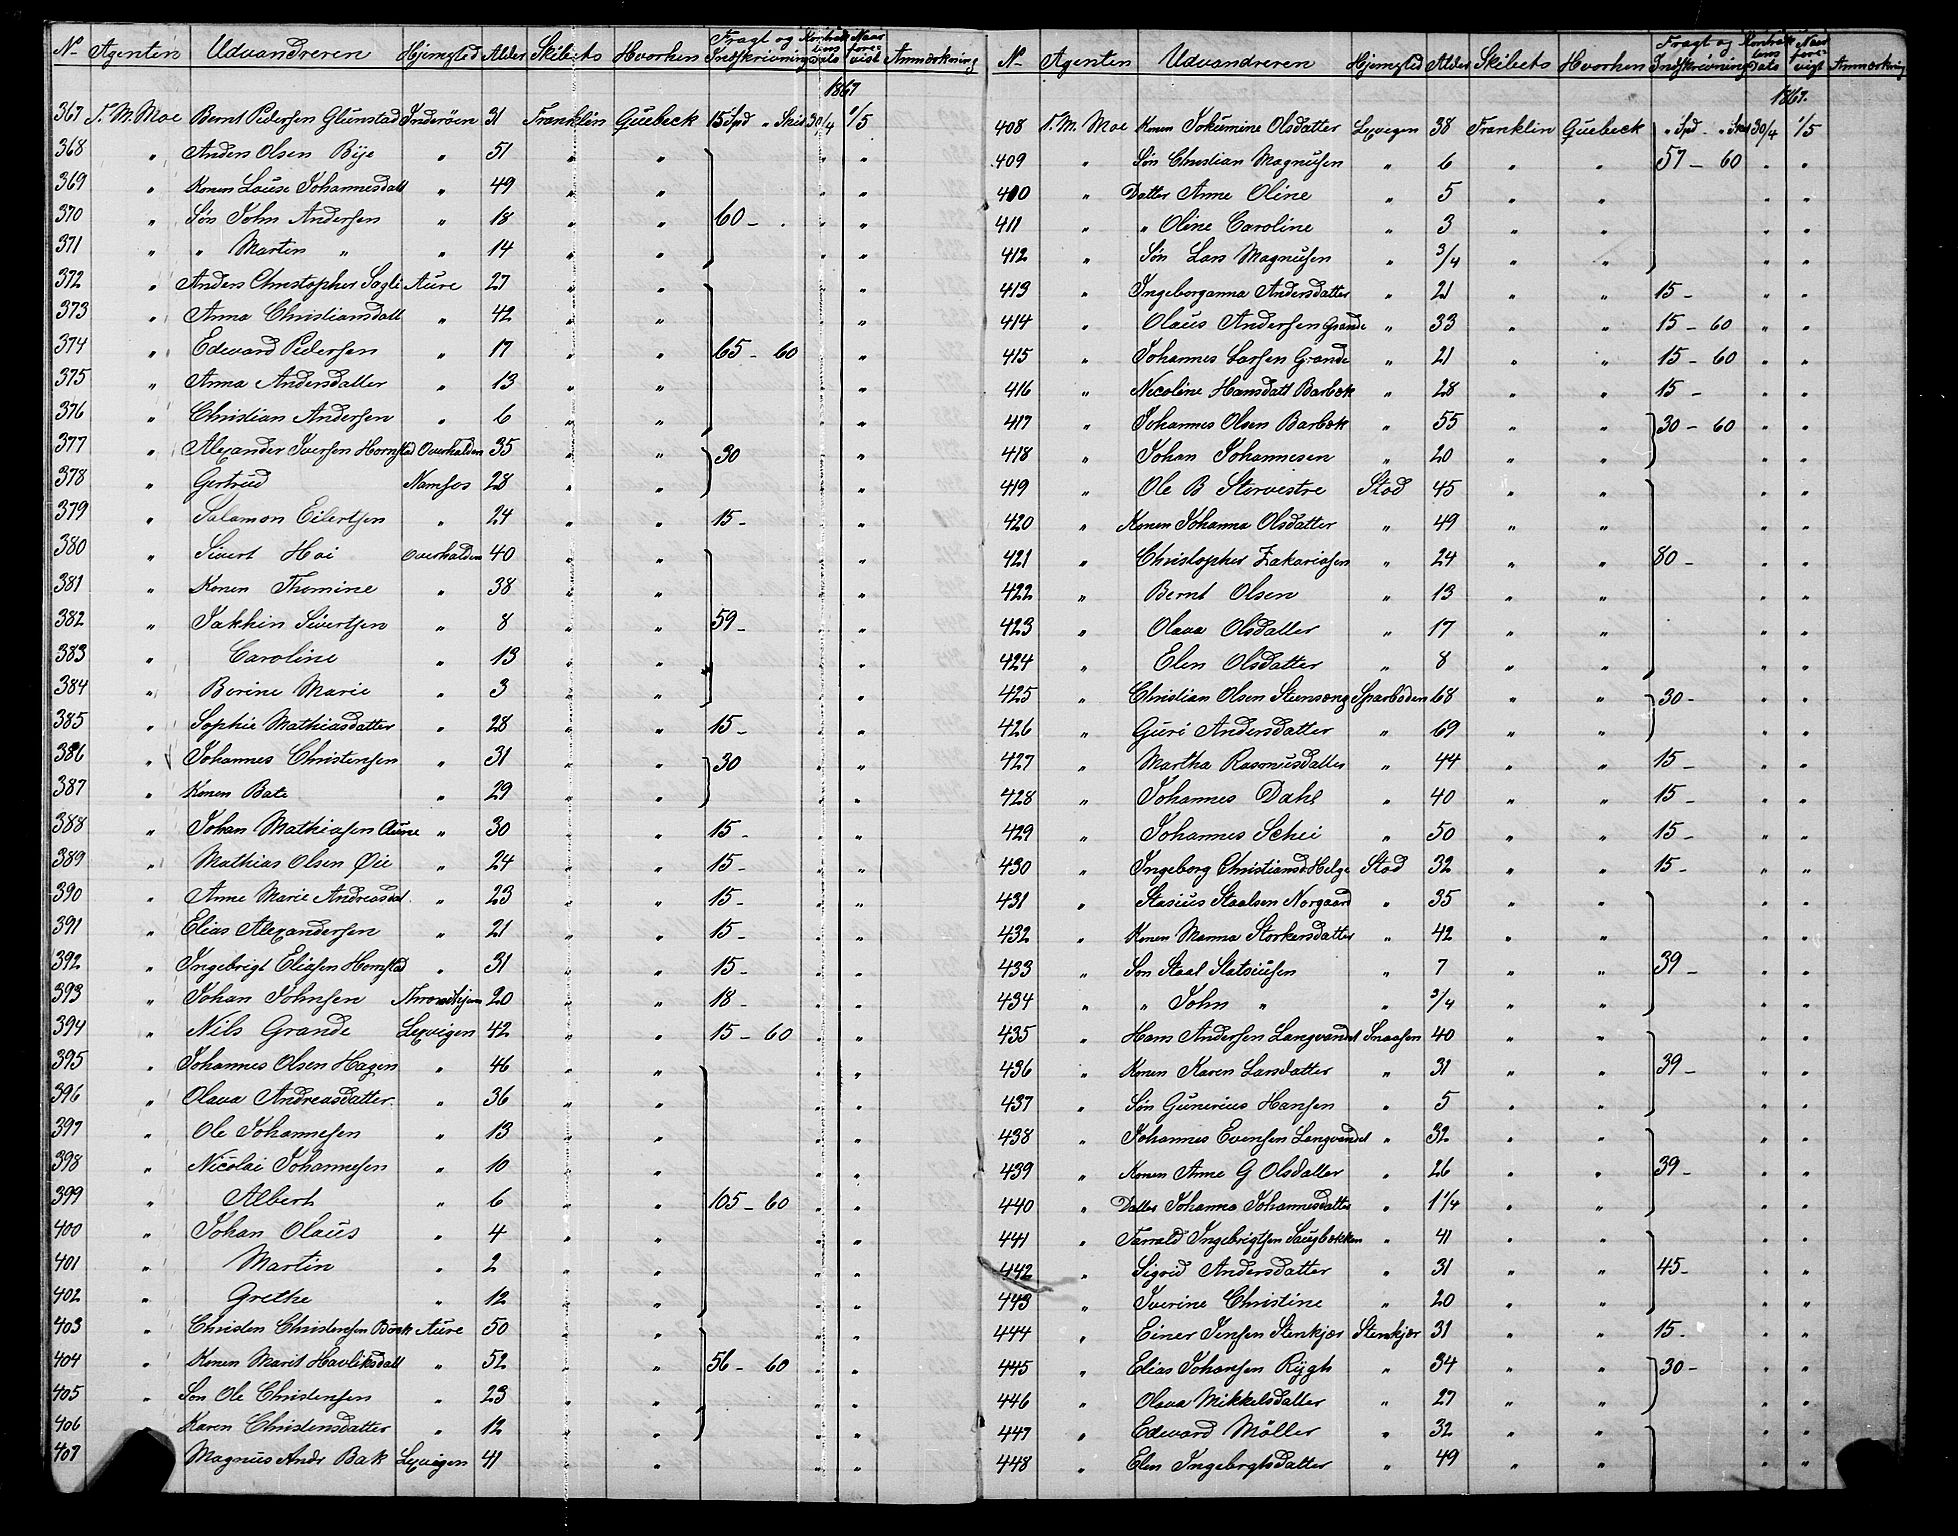 No Agenten Udvandreren Hjemsted Alder Skibets Hvorhen Fragt og Indskrivning Kontraktens Dato Naar forevist Anmærkning
1867
367 P. M. Moe Bernt Pedersen Glunstad Inderöen 31 Franklin Quebeck 15 Spd " Skill 30/4 1/5
368 " Anders Olsen Bye " 51 " " " "
369 " Konen Louise Johannesdatt " 49 " " " "
370 " Søn John Andersen " 18 " " 60 - . " "
371 " " Martin " " 14 " " " "
372 " Anders Christopher Sagli Aure 27 " " " "
373 " Anna Christiansdatt " 42 " " " "
374 " Edevard Pedersen " 17 " " 65 - 60 " "
375 " Anna Andersdatter " 13 " " " "
376 " Christian Andersen " 6 " " " "
377 " Alexander Iversen Hornstad Overhalden 35 " " 30 " "
378 " Gertrud Namsos 28 " " " "
379 " Salamon Eilertsen " 24 " " 15 - " "
380 " Sivert Hoi Overhalden 40 " " " "
381 " Konen Thomine " 38 " " " "
382 " Jakkin Sivertsen " 8 " " 59 - " "
383 " Caroline " 13 " " " "
384 " Berine Marie " 3 " " " "
385 " Sophie Mathiasdatter " 28 " " 15 - " "
386 " Johannes Christensen " 31 " " 30 " "
387 " Konen Bate " 29 " " " "
388 " Johan Mathiasen Aune " 30 " " 15 - " "
389 " Mathias Olsen Øie " 24 " " 15 - " "
390 " Anne Marie Andreasdat. " 23 " " 15 - " "
391 " Elias Alexandersen " 21 " " 15 - " "
392 " Ingebrigt Eliasen Hornstad " 31 " " 15 - " "
393 " Johan Johnsen Throndhjem 20 " " 18 - " "
394 " Nils Grande Lexvigen 42 " " 15 - 60 " "
395 " Johannes Olsen Hagen " 46 " " " "
396 " Olava Andreasdatter " 36 " " " "
397 " Ole Johannesen " 13 " " " "
398 " Nicolai Johannesen " 10 " " " "
399 " Albert " 6 " " 105 - 60 " "
400 " Johan Olaus " 4 " " " "
401 " Martin " 2 " " " "
402 " Grethe " 12 " " " "
403 " Christen Christensen Bæk Aure 50 " " " "
404 " Konen Marit Havliksdatt " 52 " " 56 - 60 " "
405 " Søn Ole Christensen " 23 " " " "
406 Karen Christensdatter " 12 " " " "
407 Magnus Andr Bak Lexvigen 41 " " " "
No Agenten Udvandreren Hjemsted Alder Skibets Hvorhen Fragt og Indskrivning Kontraktens Dato Naar forevigt Anmærkning
1867.
408 P. M. Moe Konen Jokumine Olsdatter Lexvigen 38 Franklin Quebeck " Spd - " Skil 30/4 1/5
409 " Søn Christian Magnusen " 6 " " 57 - 60 " "
410 " Datter Anne Oline " 5 " " " "
411 " " Oline Caroline " 3 " " " "
412 " Søn Lars Magnusen " 3/4 " " " "
413 " Ingeborganna Andersdatter " 21 " " 15 - " "
414 " Olaus Andersen Grande " 33 " " 15 - 60 " "
415 " Johannes Larsen Grande " 21 " " 15 - 60 " "
416 " Nicoline Hansdatt Barbæk " 28 " " 15 - " "
417 " Johannes Olsen Barbæk " 55 " " 30 - 60 " "
418 " Johan Johannesen " 20 " " " "
419 " Ole B Storvestre Stod 45 " " " "
420 " Konen Johanna Olsdatter " 49 " " " "
421 " Christopher Zakariasen " 24 " " 80 - " "
422 " Bernt Olsen " 13 " " " "
423 " Olava Olsdatter " 17 " " " "
424 " Elen Olsdatter " 8 " " " "
425 " Christian Olsen Steensæng Sparboden 68 " " 30 - " "
426 " Guri Andersdatter " 69 " " " "
427 " Martha Rasmusdatter " 44 " " 15 - " "
428 " Johannes Dahl " 40 " " 15 - " "
429 " Johannes Schei " 50 " " 15 - " "
430 " Ingeborg Christiansd. Helge Stod 32 " " 15 - " "
431 " Stasius Staalsen Norgaard " 35 " " " "
432 " Konen Marna Storkersdatter " 42 " " " "
433 " Søn Staal Statsiusen " 7 " " 39 - " "
434 " " John " " 3/4 " " " "
435 " Hans Andersen Langvandet Snaasen 40 " " " "
436 " Konen Karen Larsdatter " 31 " " 39 - " "
437 " Søn Gunerius Hansen " 5 " " " "
438 " Johannes Evensen Langvandet " 32 " " " "
439 " Konen Anne G Olsdatter " 26 " " 39 - " "
440 " Datter Johanna Johannesdatter " 1 1/4 " " " "
441 " Tarrald Ingebrigtsen Saugbækken " 41 " " " "
442 " Sigrid Andersdatter " 31 " " 45 - " "
443 " Iverine Christine " 20 " " " "
444 " Einer Jensen Stenkjær Stenkjær 31 " " 15 - " "
445 " Elias Johansen Rygh " 34 " " 30 - " "
446 " Olava Mikkelsdatter " 27 " " " "
447 " Edevard Möller " 32 " " " "
448 " Elen Ingebrgtsdatter " 49 " " " "